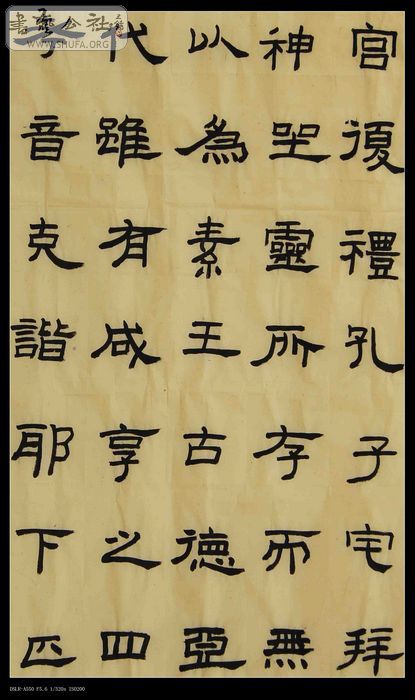 宫復禮孔子宅拜
神坐靈所存而無
以為素王古德亞
代雖有咸享之四
音克諧耶下匹
書藝公社
WWW.SHUFA.ORG
DSLR-A550 F5.6 1/320s ISO200